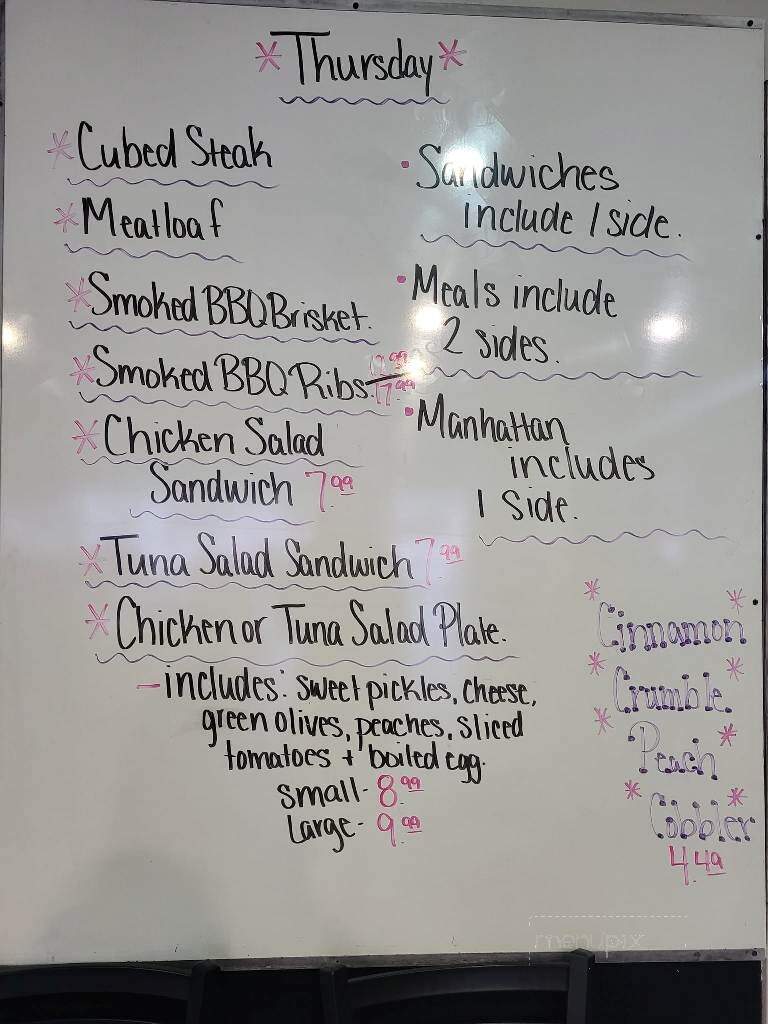 *Thursday*
*Cubed Steak
*Meatloaf
*Smoked BBQ Brisket.
*Smoked BBQ Ribs. 17.99
*Chicken Salad
Sandwich 7.99
*Tuna Salad Sandwich 7.99
*Chicken or Tuna Salad Plate.
-includes: sweet pickles, cheese,
green olives, peaches, sliced
tomatoes + boiled egg.
small- 8.99
Large- 9.99
• Sandwiches
include 1 side.
• Meals include
2 sides.
• Manhattan
includes
1 Side.
* Cinnamon *
* Crumble *
* Peach *
* Cobbler *
4.49
menupix